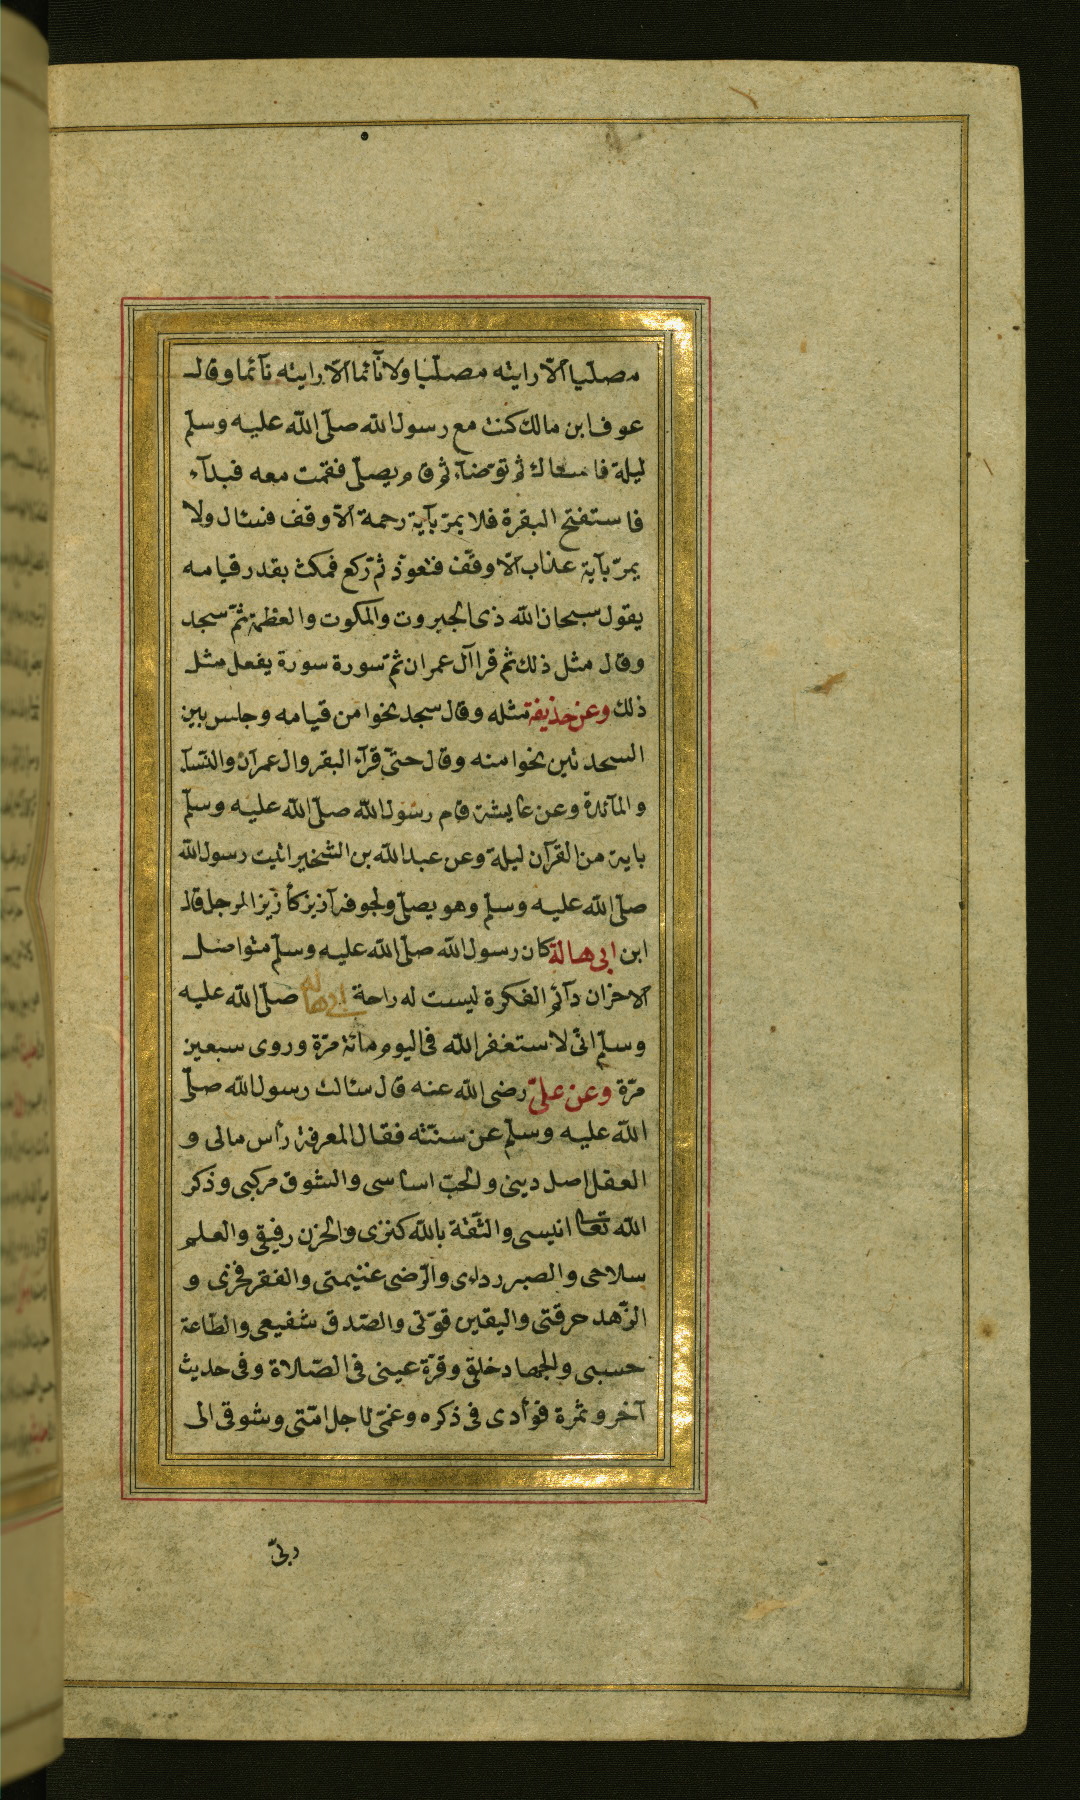 مصلّيا الّا رايته مصليا ولا نآئما الّا رايته نآئما وقال
عوف ابن مالك كنت مع رسول الله صلّى الله عليه وسلّم
ليلة فاستاك ثم توّضاء ثم قام يصلّى فقمت معه فبدآء
فاستفتح البقرة فلا يمرّ بآية رحمة الّا وقف فسئال ولا
يمرّ بآية عذاب الّا وقف فتعوّذ ثم ركع فمكث بقدر قيامه
يقول سبحان الله ذى الجبروت والملكوت والعظمة ثمّ سجد
وقال مثل ذلك ثم قرا آل عمران ثمّ سورة سورة يفعل مثل
ذلك وعن حذيفة مثله وقال سجد نحوا من قيامه وجلس بين
السجدتين نحوا منه وقال حتّى قرآء البقر وال عمران والنّسآء
والمآئدة وعن عايشة قام رسول الله صلّى الله عليه وسلّم
باية من القرآن ليلة وعن عبد الله بن الشخير اتيت رسول الله
صلّى الله عليه وسلّم وهو يصلّى ولجوفه آزيز كأزيز المرجل قال
ابن ابى هالة كان رسول الله صلّى الله عليه وسلّم متواصل
الاحزان دآئم الفكرة ليست له راحة ابى هاله صلّى الله عليه
وسلّم انّى لاستغفر الله فى اليوم مائة مرّة وروى سبعين
مرّة وعن علىّ رضى الله عنه قال سئالت رسول الله صلّى
الله عليه وسلّم عن سنّته فقال المعرفة رأس مالى و
العقل اصل دينى والحبّ اساسى والشوق مركبى وذكر
الله تعا انيسى والثّقة بالله كنزى والحزن رفيقى والعلم
سلاحى والصبر رداءى والرّضى غنيمتى والفقر فخرى و
الزّهد حرفتى واليقين قوّتى والصّدق شفيعى والطّاعة
حسبى والجهاد خلقى وقرّة عينى فى الصّلاة وفى حديث
آخر وثمرة فؤادى فى ذكره وغمّى لاجل امّتى وشوقى الى
ربّى